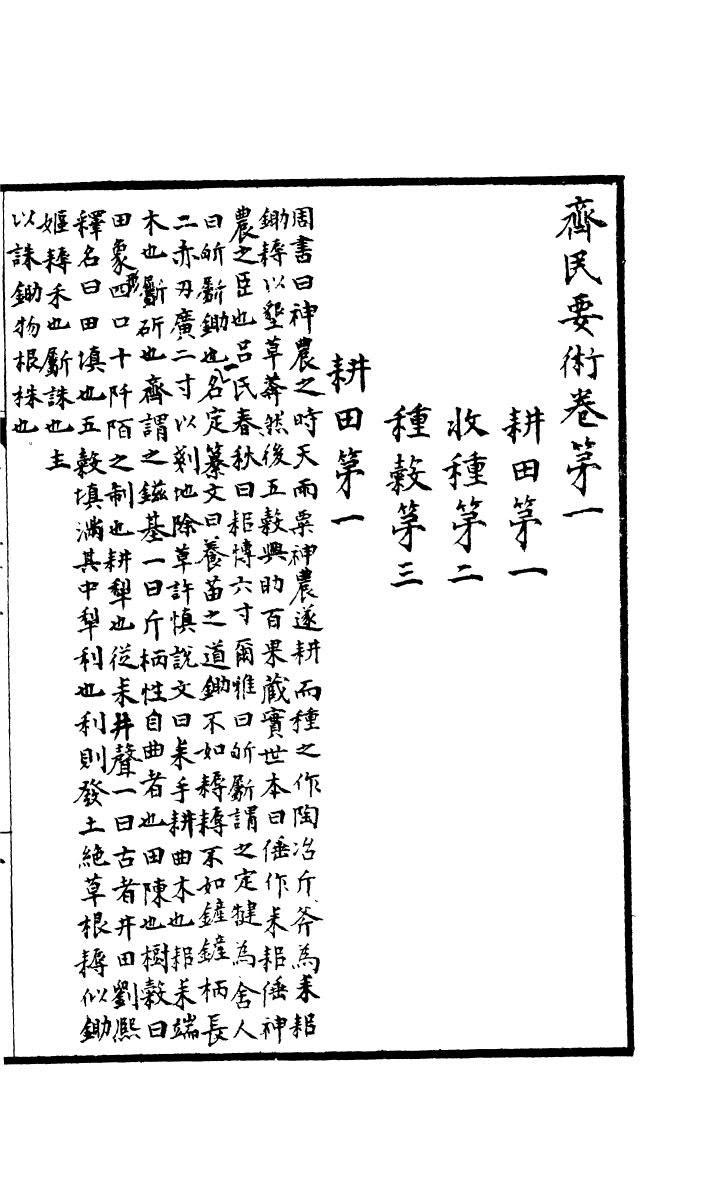 齊民要術卷第一
耕田第一
收種第二
種穀第三
耕田第一
周書曰神農之時天雨粟神農遂耕而種之作陶冶斤斧為耒耜
鋤耨以墾草莽然後五穀興助百果藏實世本曰倕作耒耜倕神
農之臣也呂氏春秋曰耜博六寸爾雅曰斪斸謂之定犍為舍人
曰斪斸鋤也一名定纂文曰養苗之道鋤不如耨耨不如鏟鏟柄長
二赤刃廣二寸以剗地除草許慎說文曰耒手耕曲木也耜耒端
木也斸斫也齊謂之鎡基一曰斤柄性自曲者也田陳也樹穀曰
田象四口十阡陌之制也耕犁也從耒井聲一曰古者井田劉熙
釋名曰田填也五穀填滿其中犁利也利則發土絕草根耨似鋤
嫗耨禾也斸誅也主
以誅鋤物根株也